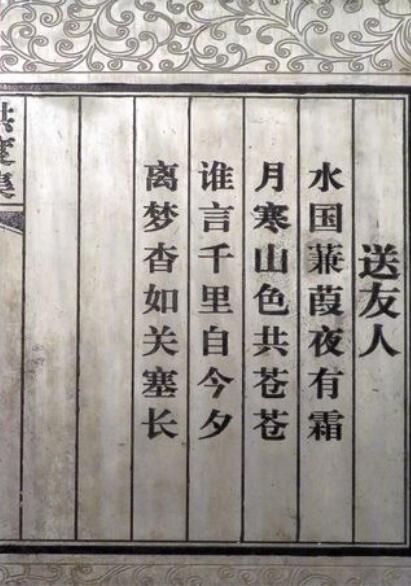 送友人
水国蒹葭夜有霜
月寒山色共苍苍
谁言千里自今夕
离梦杳如关塞长
洪度集